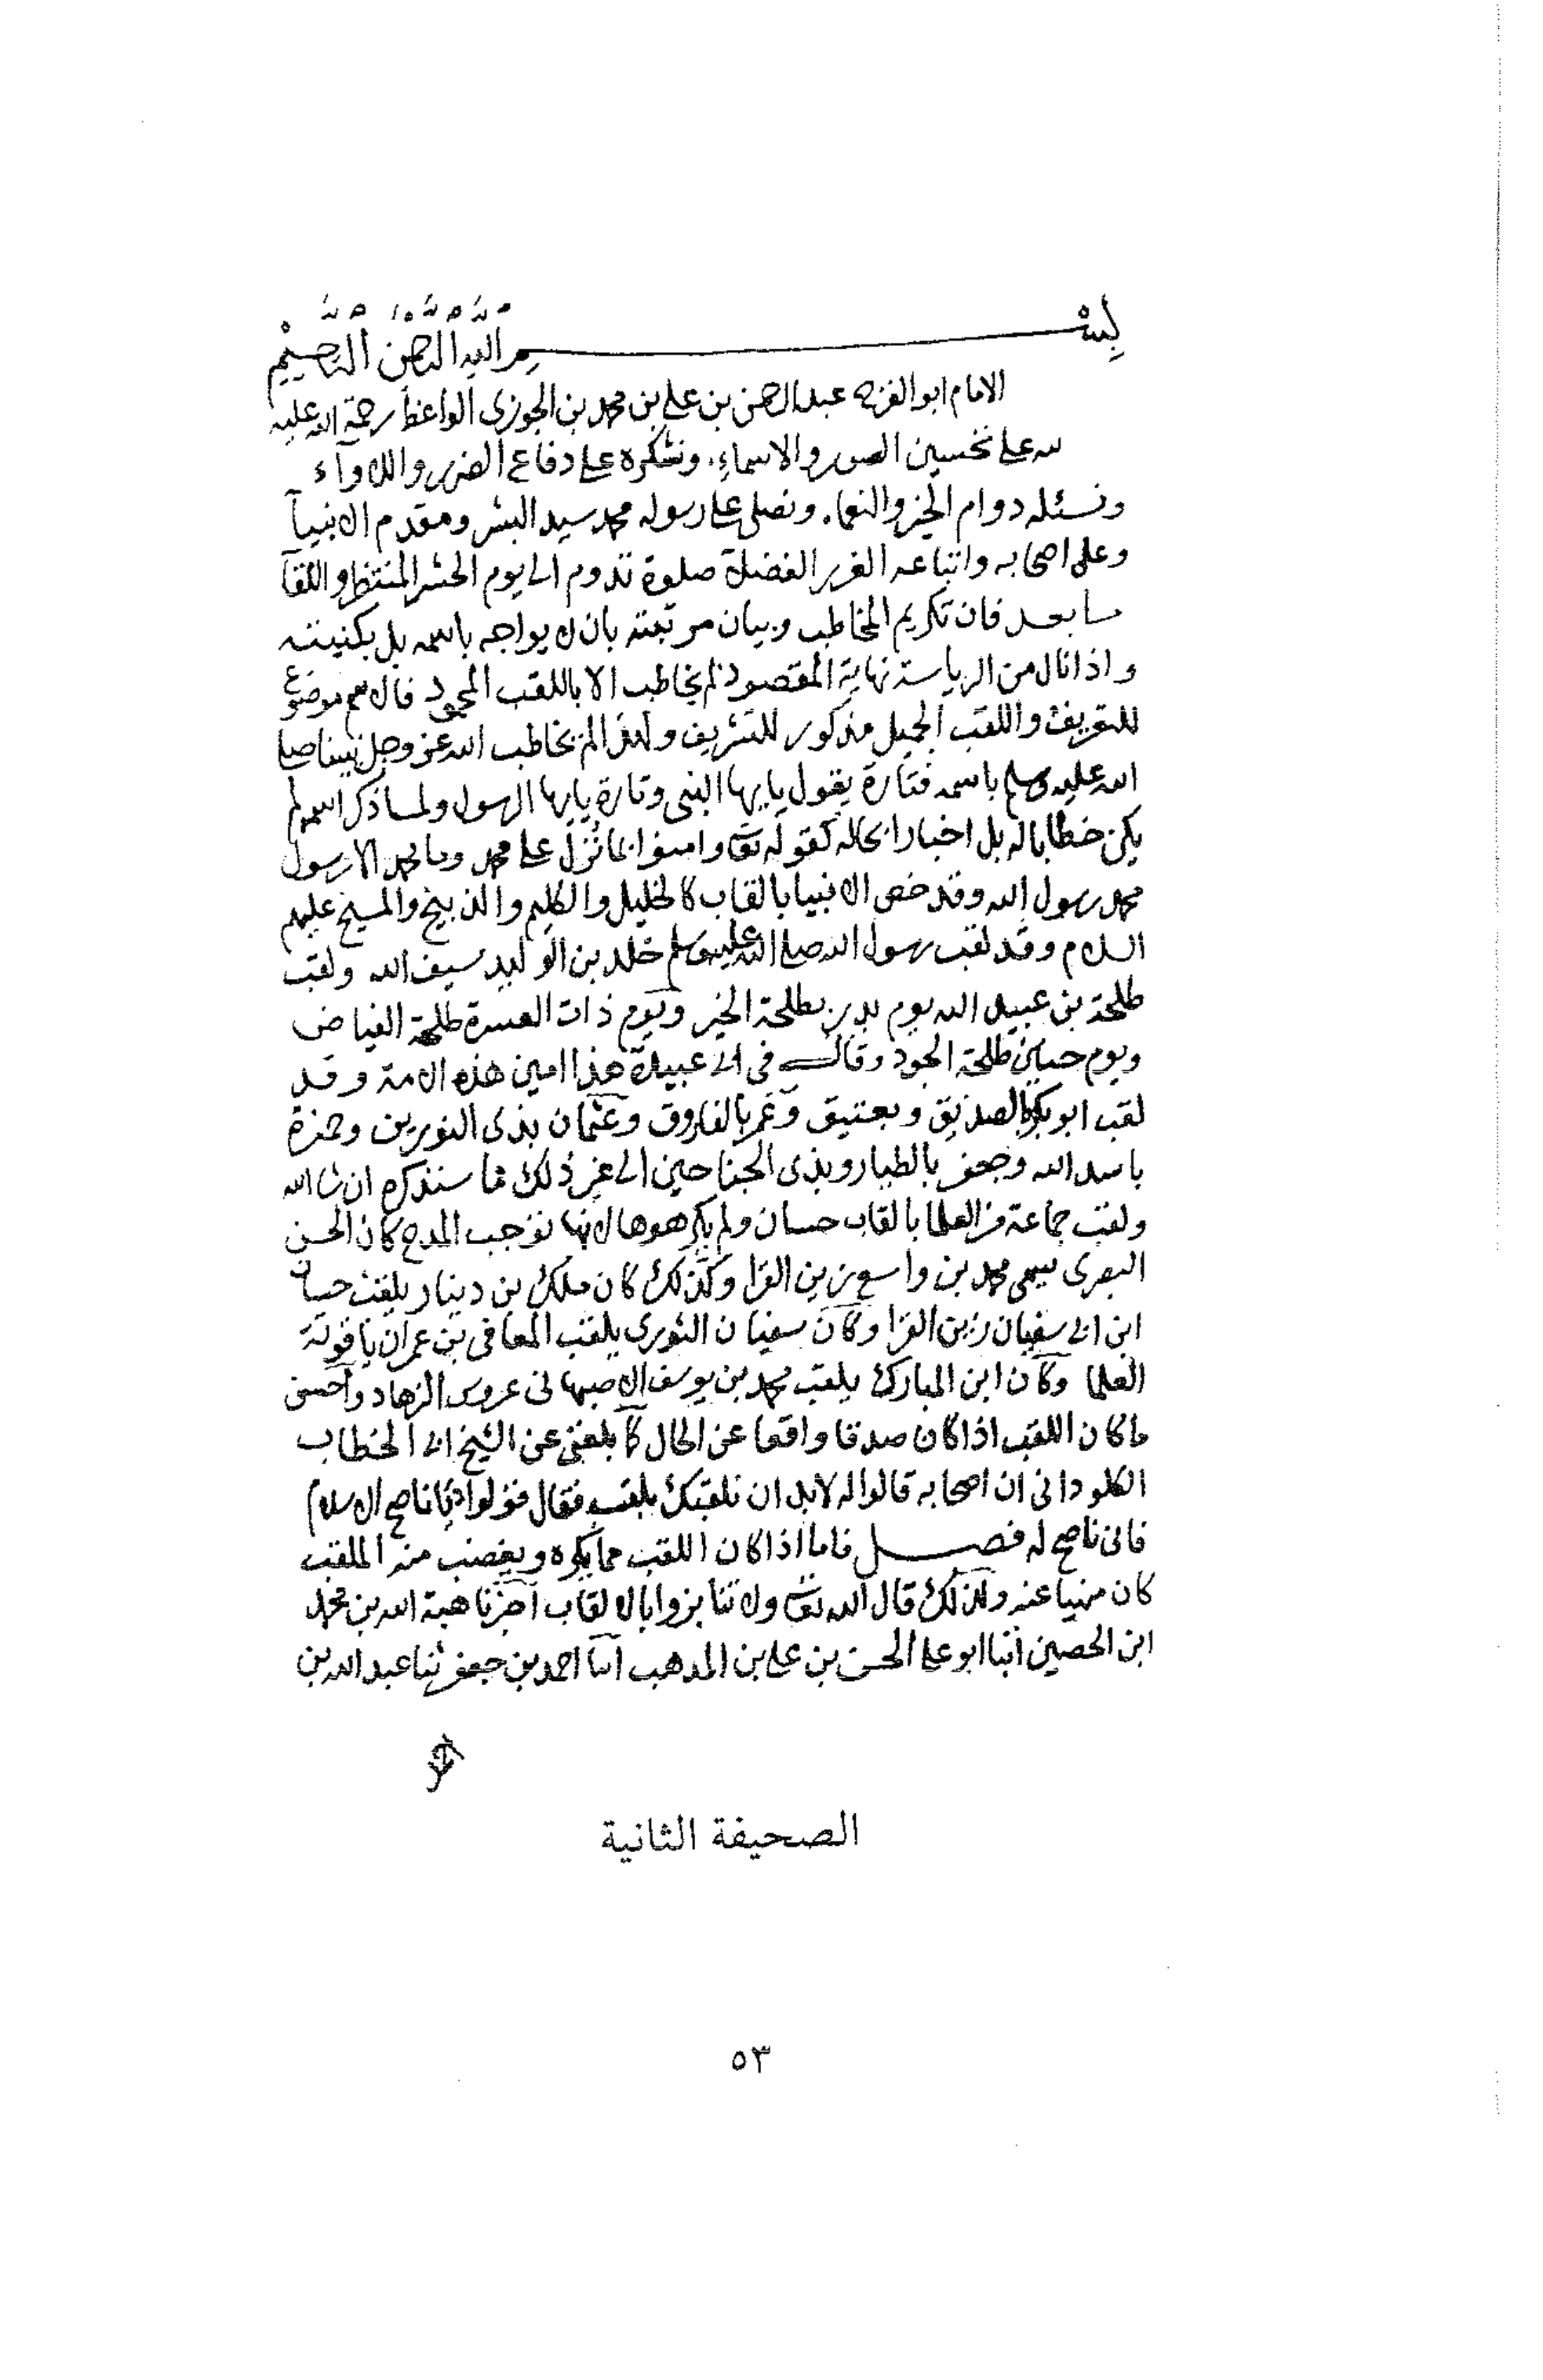 بِسْمِ اللهِ الرَّحْمٰنِ الرَّحِيْمِ
الامام ابو الفرج عبد الرحمن بن علي بن محمد بن الجوزى الواعظ رحمة الله عليه
لله على تحسين الصور والاسماء، ونشكره على دفاع الضرر واللاوآء
ونسئله دوام الخير والنعماء، ونصلى على رسوله محمد سيد البشر ومقدم الانبيآ
وعلى اصحابه واتباعه الغرر الفضلآ صلوة تدوم الى يوم الحشر المنتظر واللقآ
ما بعد فان تكريم المخاطب وبيان مرتبته بان لا يواجه باسمه بل بكنيته
واذا نال من الرياسة نهاية المقصود لم يخاطب الا باللقب المحمود فالاسم موضوع
للتعريف واللقب الجميل مذكور للتشريف ولهذا لم يخاطب الله عز وجل نبينا صلى
الله عليه وسلم باسمه فتارة يقول يايها النبى وتارة يايها الرسول ولما ذكر اسمه لم
يكن خطابا له بل اخبارا بحاله كقوله تعا وامنوا بما نُزّل على محمد وما محمد الا رسول
محمد رسول الله وقد خص الانبيا بالقاب كالخليل والكليم والذبيح والمسيح عليهم
السلام وقد لقب رسول الله صلى الله عليه وسلم خلد بن الوليد سيف الله ولقب
طلحة بن عبيد الله يوم بدر بطلحة الخير ويوم ذات العسرة طلحة الفياض
ويوم حنين طلحة الجود وقال فى ابى عبيدة هذا امين هذه الامة وقد
لقب ابو بكر بالصديق وبعتيق وعمر بالفاروق وعثمان بذى النورين وحمزة
باسد الله وجعفر بالطيار وبذى الجناحين الى غير ذلك مما سنذكره ان شا الله
ولقب جماعة من العلما بالقاب حسان ولم يكرهوها لانها توجب المدح كان الحسن
البصرى يسمى محمد بن واسع زين القرا وكذلك كان ملك بن دينار يلقب حسان
ابن ابى سفيان زين القرا وكان سفيان الثورى يلقب المعافى بن عمران ياقوتة
العلما وكان ابن المبارك يلقب محمد بن يوسف الاصبهانى عروس الزهاد واحسن
ما كان اللقب اذا كان صدقا واقعا عن الحال كما بلغنى عن الشيخ ابى الخطاب
الكلوذانى ان اصحابه قالوا له لابد ان نلقبك بلقب فقال قولوا ناصح الاسلام
فانى ناصح له فصل فاما اذا كان اللقب مما يكره ويغضب منه الملقب
كان منهيا عنه ولذلك قال الله تعا ولا تنابزوا بالالقاب اخبرنا هبة الله بن محمد
ابن الحصين انبا ابو على الحسن بن على بن المذهب انبا احمد بن جعفر ثنا عبد الله بن
الصحيفة الثانية
٥٣